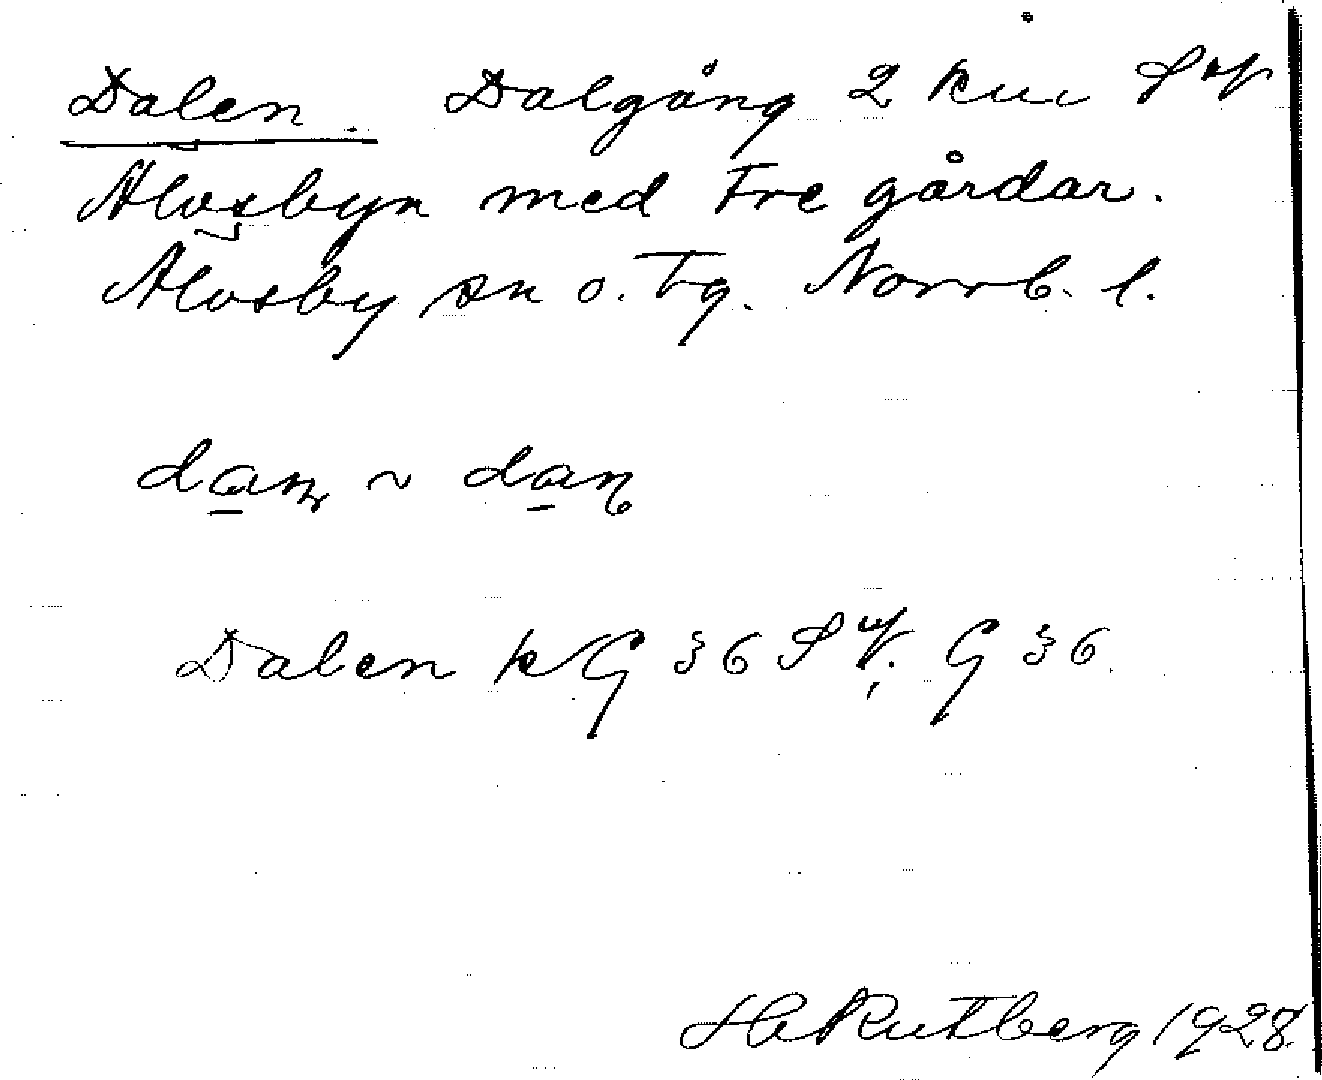 Dalen. Dalgång 2 km S of
Älvsbyn med tre gårdar.
Älvsby sn o. tg. Norrb. l.
dan ~ dan
Dalen k G 36 S v. G 36.
H Rutberg 1928